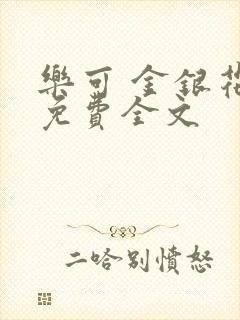 樂可 金銀花
免費全文
二哈別憤怒